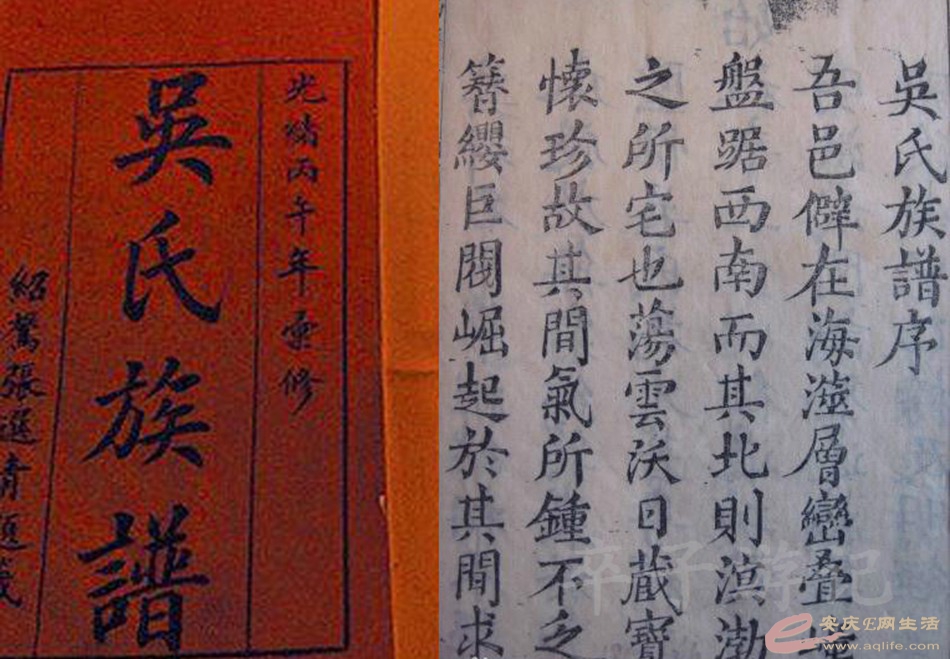 光緒丙午年重修
吳氏族譜
紹張選青題籤
吳氏族譜序
吾邑僻在海澨層巒疊
盤踞西南而其北則溟渤
之所宅也蕩雲沃日藏寶
懷珍故其間氣所鍾不乏
簪纓巨閥崛起於其間求
子游记
安庆E网生活
www.aqlife.com